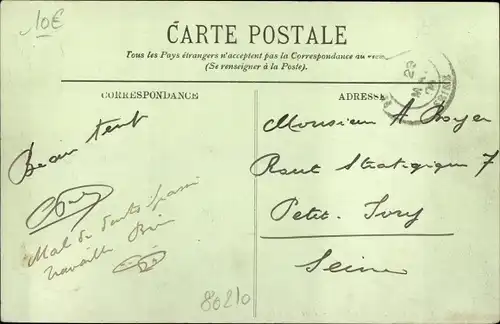 10€
CARTE POSTALE
Tous les Pays étrangers n'acceptent pas la Correspondance au
(Se renseigner à la Poste).
CORRESPONDANCE
ADRESSE
Beau temt
Mal de dents
travaille
Monsieur A Royer
Rout Stratégique 7
Petit-Ivry
Seine
80210